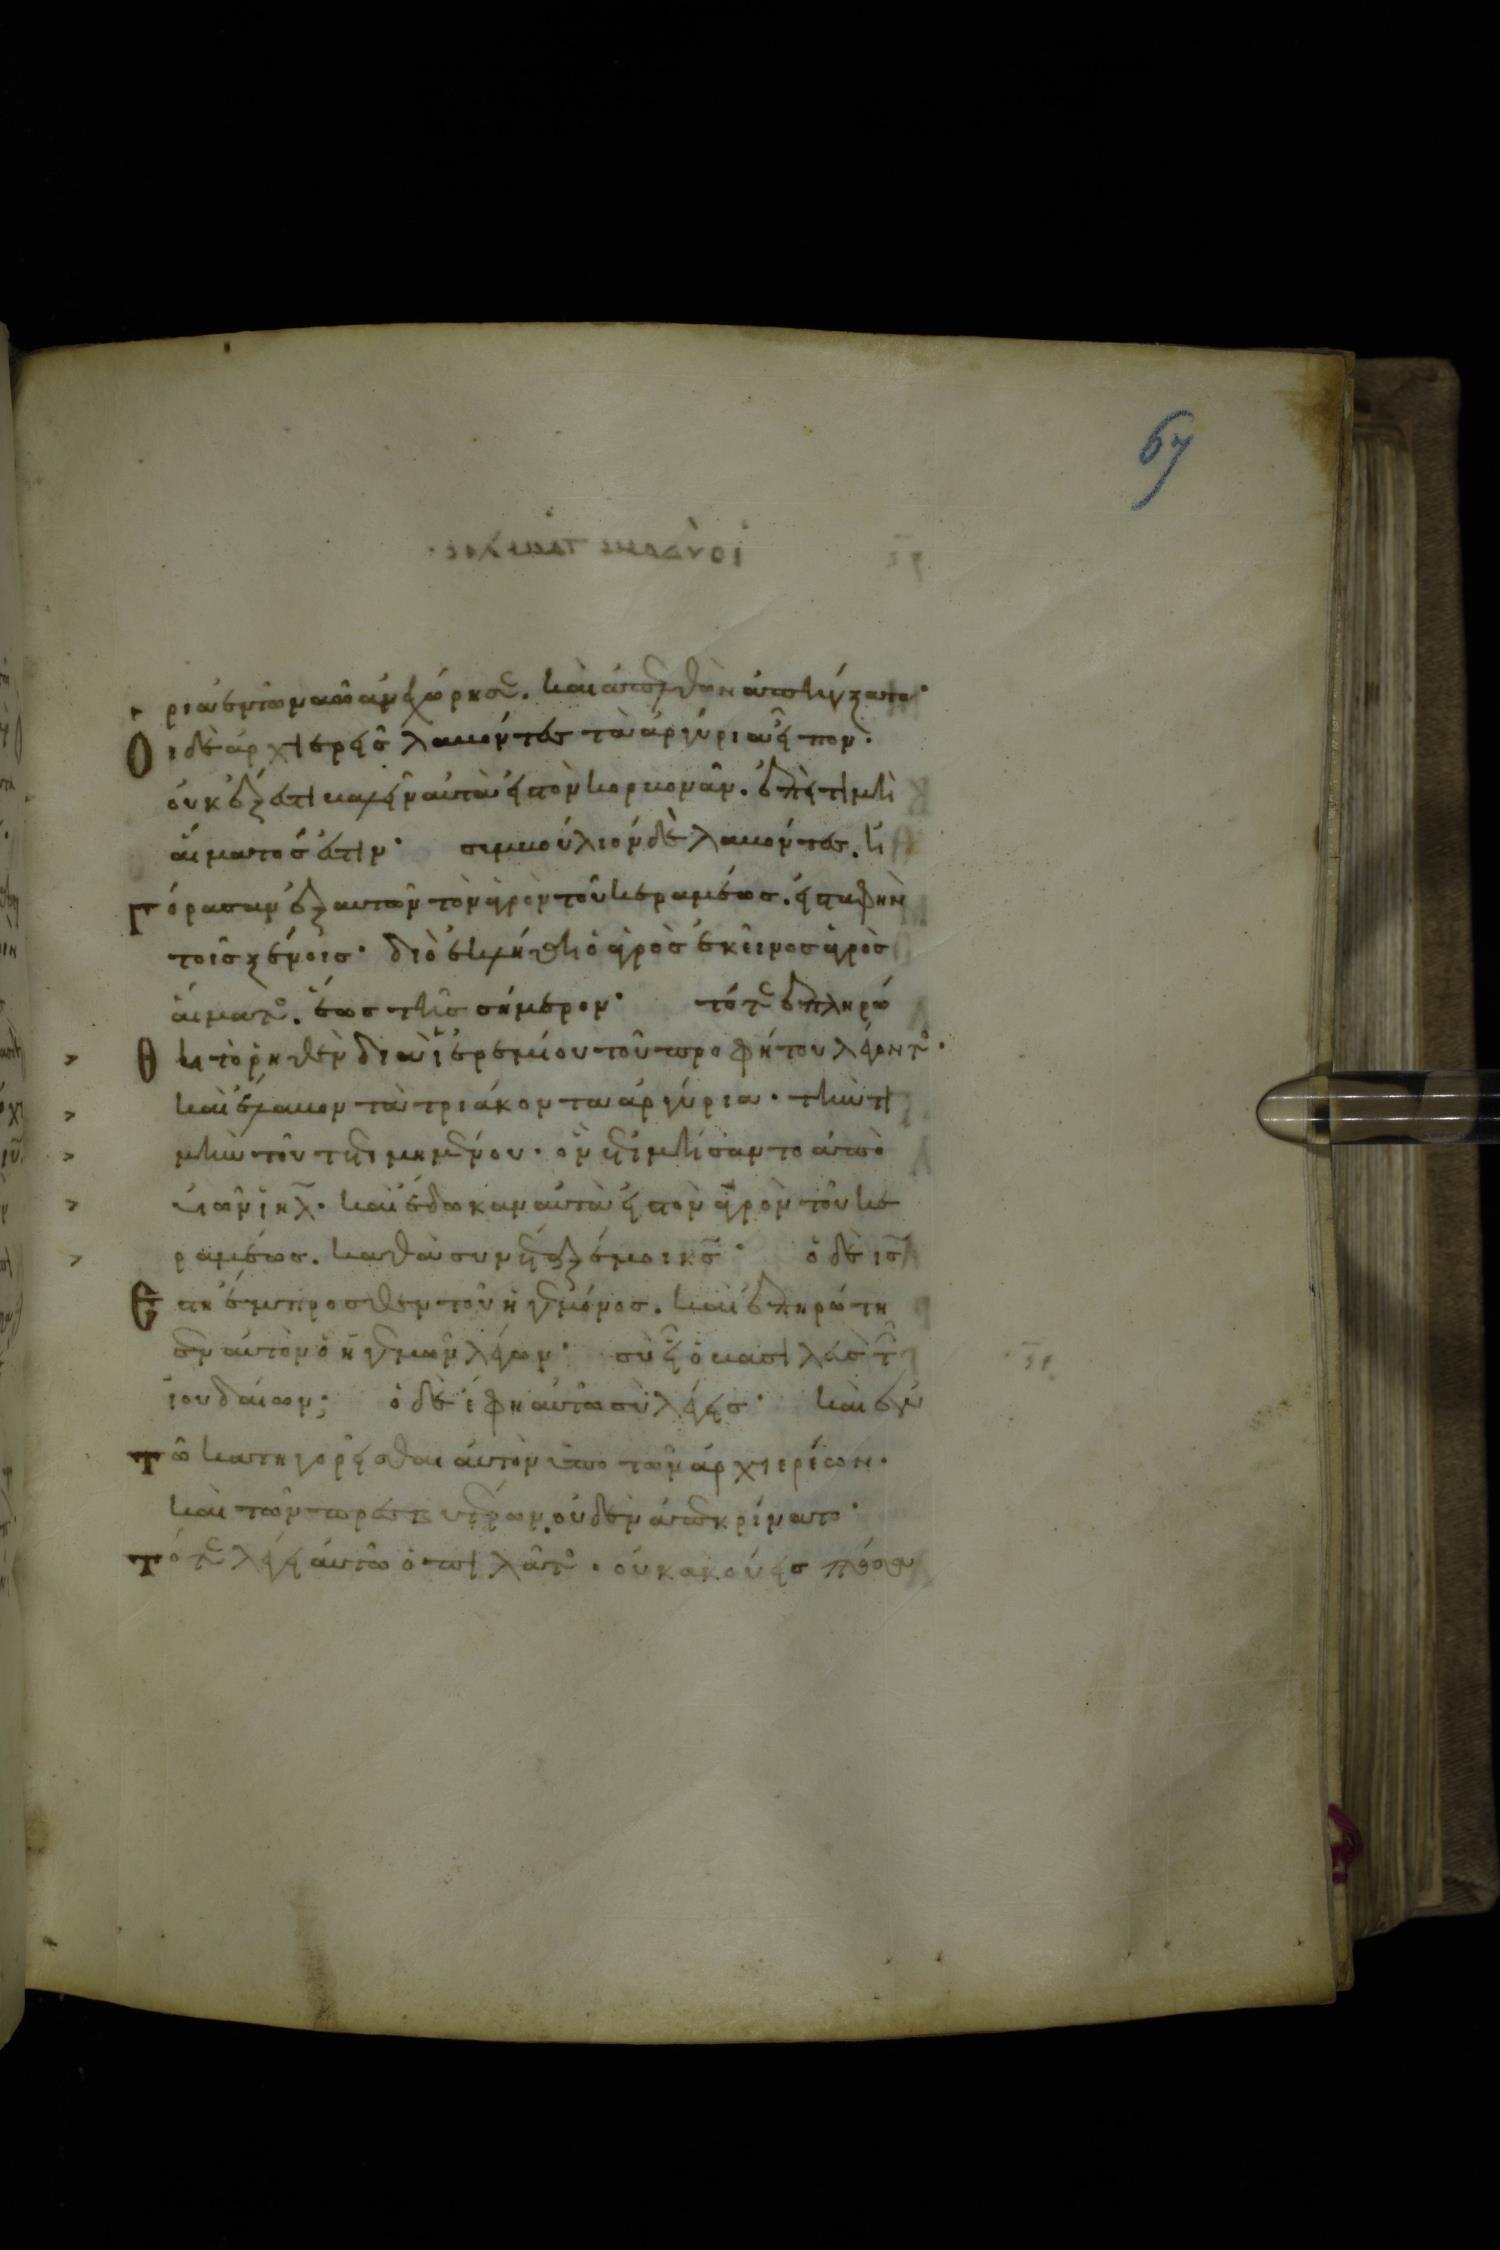 67
ριαἐντῶναῶἀνεχώρησε. καὶἀπελθὼνἀπηγξατο·
Οιδὲἀρχιερεῖς λαβόντες τὰἀργύριαεἶπον·
ὀυκἔξεστι βαλεῖναὐτὰεἰςτὸνκορβονᾶν. ἐπεὶτιμὴ
ἅιματοσἐστιν· συμβούλιονδὲλαβόντες. ἠ
Γόρασανἐξαυτῶντὸνἀγρὸντοῦκεραμέως. εἰςταφὴν
τοῖσξένοις· διὸἐκλήθηὁἀγρὸςἐκεῖνοςἀγρὸς
ἅιματο. ἕωςτῆςσήμερον· τότε ἐπληρώ
Θητὸρηθὲνδιὰἱερεμίουτοῦπροφήτουλέγοντο·
καὶἔλαβοντὰτριάκονταἀργύρια· τὴντι
μὴντοῦτετιμημένου· ὃνἐτιμήσαντοἀπὸ
υἱῶνιηλ. καὶἔδωκαναὐτὰεἰςτὸνἀγρὸντοῦκε
ραμέως. καθὰσυνέταξέμοικς· ὁδὲις
Εστηἔμπροσθεντοῦἡγεμόνος. καὶἐπηρώτη
σεναὐτὸνὁἡγεμὼνλέγων· σὺεἶὁβασιλεὺςτ
ἰουδαίων; ὁδὲἔφηαὐτῶσὺλέγεις· καὶἐν
Τῶκατηγορεῖσθαιἀυτὸνὑπὸτῶνἀρχιερέων.
καὶτῶνπρεσβυτέρων.οὐδὲνἀπεκρίνατο·
Τότελέγειἀυτῶὁπιλᾶτο. οὐκἀκούεισπόσα